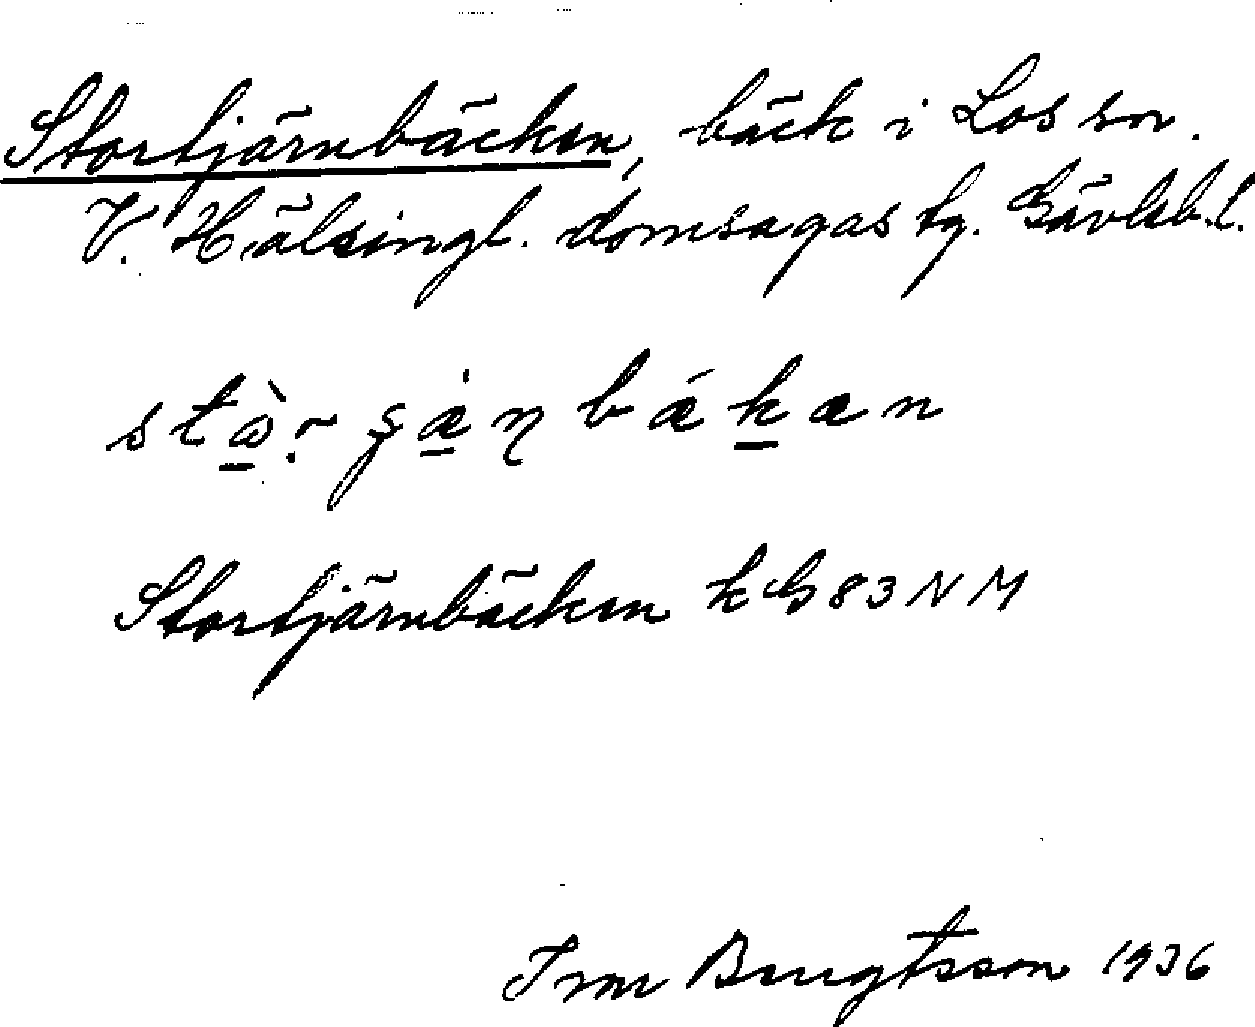 Stortjärnbäcken, bäck i Los sn.
V. Hälsingl. domsagas tg. Gävleb. l.
Stortjärnbäcken k G 83 N M
Ivar Bengtsson 1936